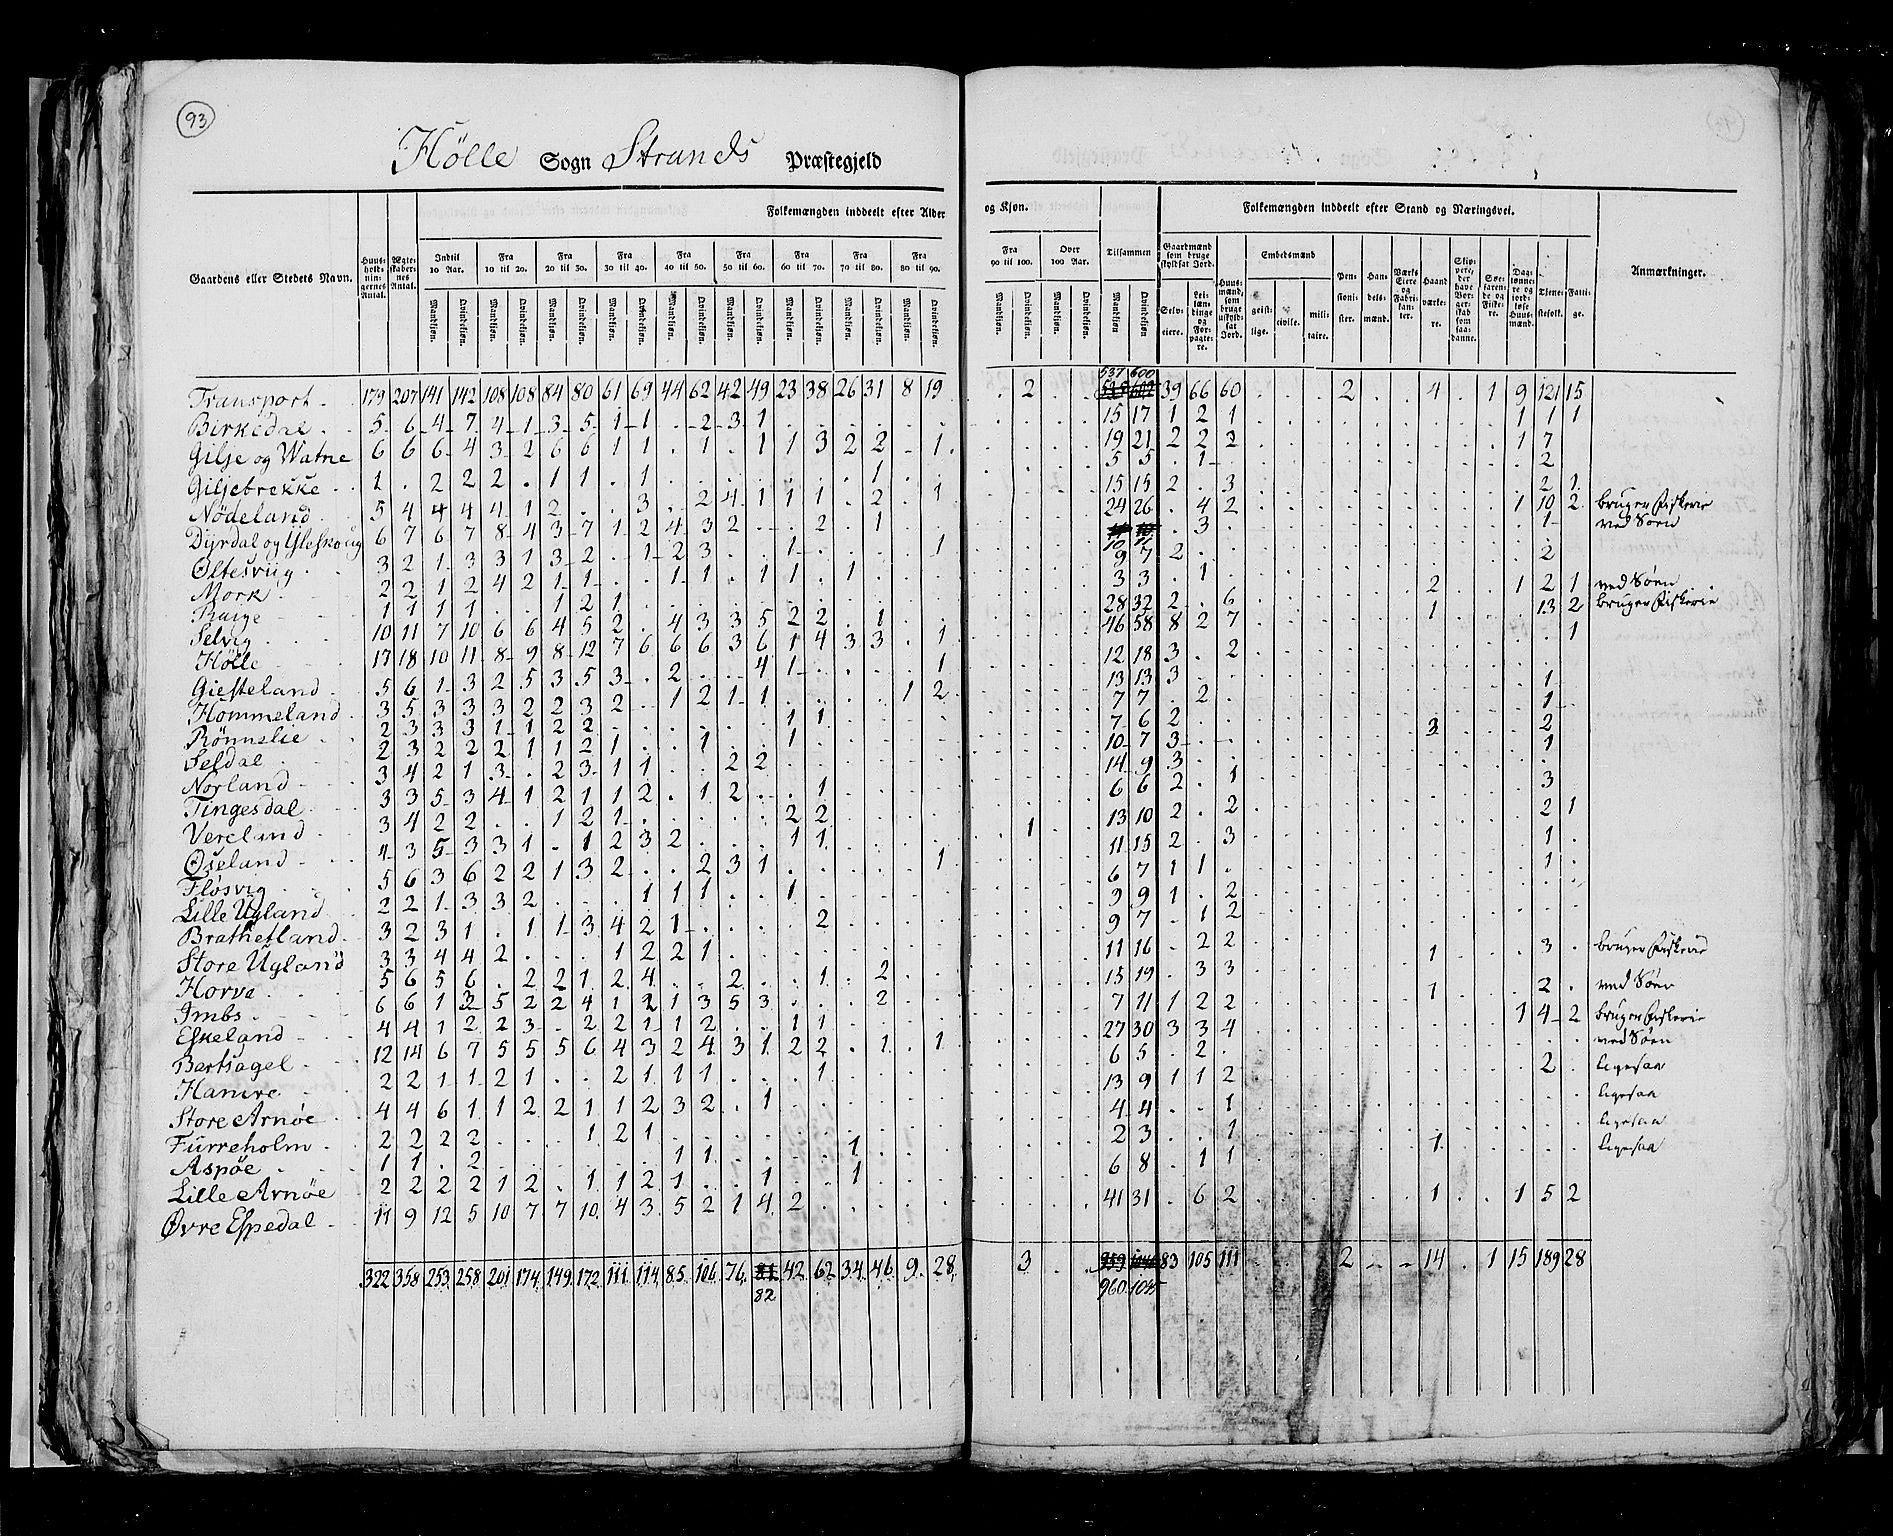 93
Hölle Sogn Strands Præstegjeld
Folkemængden inddeelt efter Alder og Kjøn.
Folkemængden inddeelt efter Stand og Næringsvei.
Gaardens eller Stedets Navn.
Huus-holdningernes Antal.
Ægteskabernes Antal.
Indtil 10 Aar.
Fra 10 til 20.
Fra 20 til 30.
Fra 30 til 40.
Fra 40 til 50.
Fra 50 til 60.
Fra 60 til 70.
Fra 70 til 80.
Fra 80 til 90.
Fra 90 til 100.
Over 100 Aar.
Tilsammen
Mandkjøn. Qvindekjøn.
Gaardmænd som bruge skyldsat Jord.
Selveiere.
Leilændinge og Forpagtere.
Huusmænd, som bruge uskyldsat Jord.
Embedsmænd
geistlige. civile. militaire.
Pensionister.
Handelsmænd.
Værks Eiere og Fabrikanter.
Haandværkere.
Skippere, der have Borgerskab som saadanne.
Søefarende og Fiskere.
Daglønnere og jordløse Huusmænd.
Tjenestefolk.
Fattige.
Anmærkninger.
Transport 179 207 141 142 108 108 84 80 61 69 44 62 42 49 23 38 26 31 8 19 . 2 . . 537 600 39 66 60 . . . 2 . . 4 . 1 9 121 15
Birkedal 5 6 4 7 4 1 3 5 1 1 . 2 3 1 15 17 1 2 1 1 1 1
Gilje og Watne 6 6 6 4 3 2 6 6 1 1 . 1 . 1 1 3 2 2 . 1 19 21 2 2 2 1 7
Giljebrekke 1 . 2 2 2 . 1 1 . 1 . . . . . . . 1 5 5 . 1 2
Nödeland 5 4 4 4 4 1 2 . . 3 . 2 4 1 1 1 . 2 . 1 15 15 2 . 3 2 1
Dyrdal og 6 7 6 7 8 4 3 7 1 2 4 3 2 . . 2 . 1 24 26 . 4 2 1 10 2 bruger Fiskerie
Oltesviig 3 2 1 3 3 1 3 2 . 1 2 3 . . 1 . . . . 1 10 11 . 3 1 ved Søen
Mork 2 2 1 2 4 2 1 1 . . 1 1 . 1 1 . 1 9 7 2 2
Bruige 1 1 1 1 . . 1 2 1 3 3 . 1
Selvig 10 11 7 10 6 6 4 5 2 . 4 3 3 5 2 2 . 1 28 32 2 . 6 2 1 2 1 ved Søen
Hölle 17 18 10 11 8 9 8 12 7 6 6 6 3 6 1 4 3 3 . 1 46 58 8 2 7 1 13 2 bruger Fiskerie
Giesteland 5 6 1 3 2 5 3 5 3 . 2 . . 4 1 . . . . 1 12 18 3 . 2 . 1
Hommeland 3 5 3 3 3 2 2 3 2 . 1 2 1 1 . . . . 1 2 13 13 3
Rönnelie 2 3 3 3 1 1 2 2 . . . . . . 1 1 7 7 . 2 1
Seldal 2 3 2 2 2 1 1 2 1 . . 1 . . 1 7 6 2 1
Norland 3 4 2 1 3 . 2 3 1 1 . . 2 2 10 7 3 3 2
Tingesdal 3 3 5 3 4 1 2 1 1 2 . 1 2 . . 1 14 9 3 1
Vereland 3 4 2 2 . . 1 2 1 . . . . . 2 2 6 6 2 . 1 3
Öseland 4 3 5 3 3 1 . 1 2 3 2 . . . 1 1 . . . . . 1 13 10 2 . 2 2 1
Flösvig 5 6 3 6 2 2 1 3 2 . . 2 3 1 . . . . . 1 11 15 2 . 3 1
Lille Ugland 2 2 1 3 3 2 . . . 1 1 1 . . 1 6 7 1 1 . 1
Brathetland 3 2 3 1 . 1 1 3 4 2 1 . . . . 2 9 9 1 . 2
Store Ugland 3 3 4 4 2 . . . 1 2 2 1 9 7 . 1 2
Horve 5 6 5 6 . 2 2 1 2 4 . . 2 . . 1 . 2 11 16 . 2 2 1 3 bruger Fiskerie
Imbs 6 6 1 2 5 2 2 4 1 2 1 3 5 3 . . . 2 15 19 . 3 3 1 2 ved Søen
Eskeland 4 4 1 2 2 3 . 2 2 1 1 2 . . 1 1 7 11 1 2 2 1 4 2 bruger Fiskerie
Bertsagel 12 14 6 7 5 5 5 6 4 3 2 4 3 1 2 2 . 1 . 1 27 30 3 3 4 ved Søen
Hamre 2 2 1 1 2 1 . . 2 1 1 1 . . . 1 6 5 . 2 . 2 ligesaa
Store Arnöe 4 4 6 1 1 2 2 1 1 2 3 2 . 1 13 9 1 1 2 ligesaa
Furreholm 2 2 2 2 . . . 1 2 1 4 4 . . 1 ligesaa
Aspöe 1 1 . 2 . . . . . . 1 1 . . . . 1 2 3 . . 1 1 ligesaa
Lille Arnöe 2 2 2 2 1 2 . 1 1 2 1 . . 1 . . 1 6 8 . 1 1
Övre Espedal 11 9 12 5 10 7 7 10 4 3 5 2 1 4 2 41 31 . 6 2 1 . . 1 5 2
322 358 253 258 201 174 149 172 111 114 85 106 76 82 42 62 34 46 9 28 . 3 . . 960 1045 83 105 111 . . . 2 . . 14 . 1 15 189 28